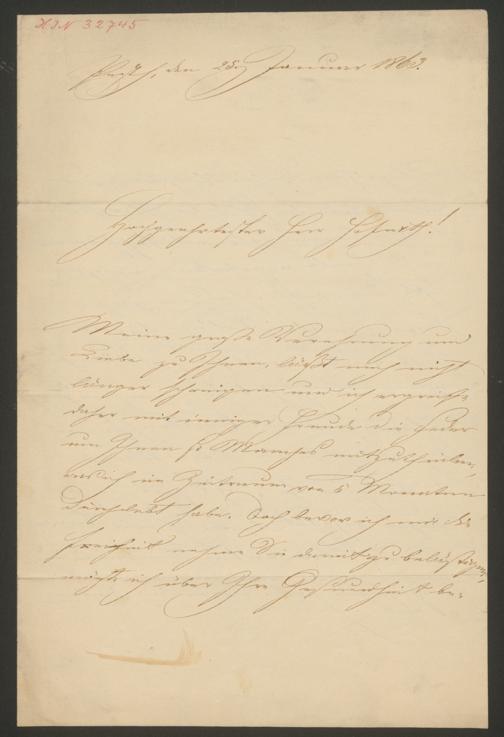 H.I.N 32745
Pesth, den 25. Januar 1862.
Hochgeehrtester Herr Hofrath!
Meine große Verehrung und
Liebe zu Ihnen, läßt mich nicht
länger schweigen und ich ergreife
daher mit inniger Freude die Feder
um Ihnen so Manches mitzutheilen,
was ich im Zeitraume von 5 Monaten
durchlebt habe. Doch bevor ich mir die
Freiheit nehme Sie damit zu belästigen,
möchte ich über Ihre Gesundheit be-